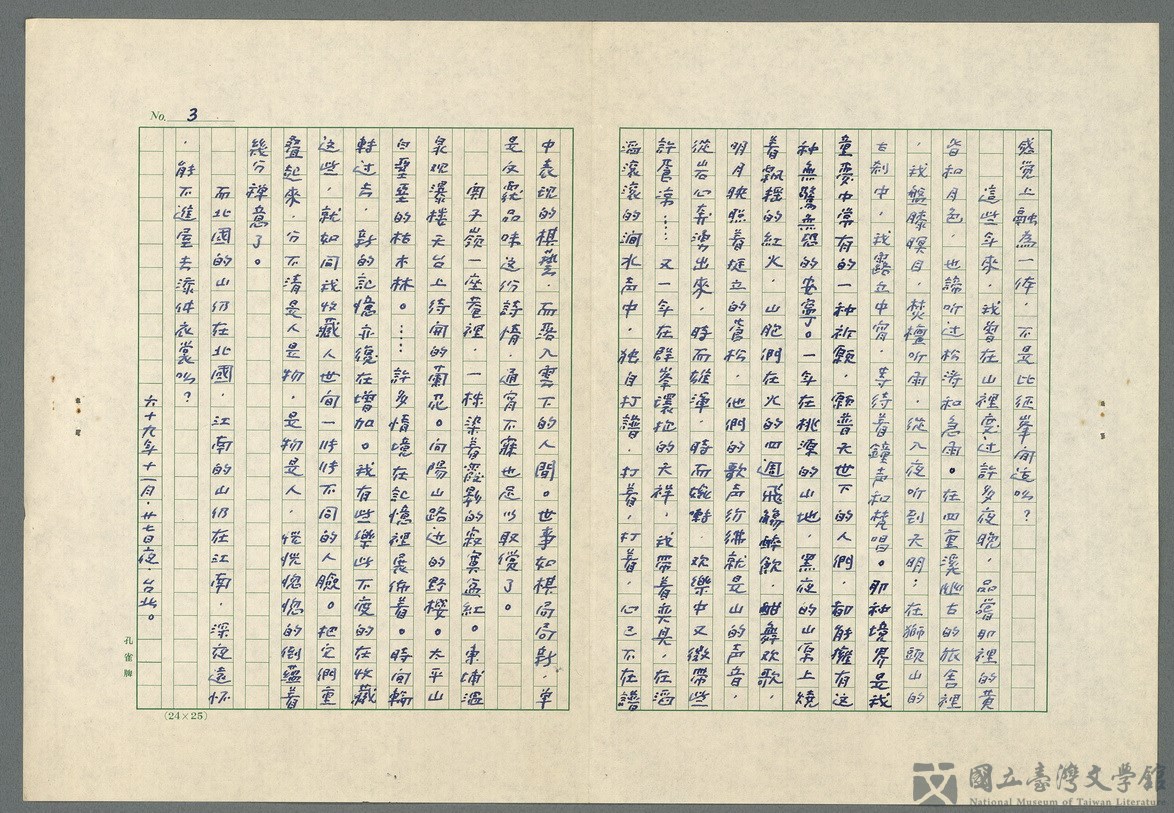 No. 3
感覚上融為一体，不是比经拳间遠吗？
這些年来，我曾在山裡度过許多夜晚，品嘗那裡的黄
昏和月色，也諦听过松涛和急雨。在四重溪幽古的旅舍裡
，我盤膝瞑目，焚檀听雨，從入夜听到天明；在獅頭山的
古刹中，我露立中宵，等待着鐘声和梵唱。那种境界是我
童夢中常有的一种祈願，願普天世下的人們，都能擁有这
种無驚無恐的安寧。一年在桃源的山地，黑夜的山原上燒
着飄搖的红火，山胞們在火的四週飛觴醉飲，酣舞欢歌，
明月映照着挺立的蒼松，他們的歌声彷彿就是山的声音，
從岩心奔湧出來，時而雄渾，時而婉轉，欢樂中又微帶些
許蒼涼……又一年在群峯環抱的天祥，我帶着奕具，在滔
滔滾滾的澗水声中，独自打譜，打着，打着，心已不在譜
中表現的棋藝，而落入雲下的人間。世事如棋局局新，单
是反覆品味这份詩情，通宵不寐也足以取償了。
關子嶺一座菴裡，一株染着霞影的寂寞盆红。東埔温
泉观瀑楼天台上待開的蘭忍。向陽山路边的野櫻。太平山
白堊堊的枯木林。……許多情境在記憶裡展佈着。時间輪
轉过去，新的記憶亦復在增加。我有些樂此不疲的在收藏
这些，就如同我收藏人世间一张张不同的人臉。把它們重
疊起來，分不清是人是物，是物是人，恍恍惚惚的倒蕴着
幾分禅意了。
而北國的山仍在北國，江南的山仍在江南，深夜遠怀
，能不進屋去添件衣裳吗？
六十九年十一月，廿七日夜，台北。
孔雀牌
(24×25)
國立臺灣文学館
National Museum of Taiwan Literature